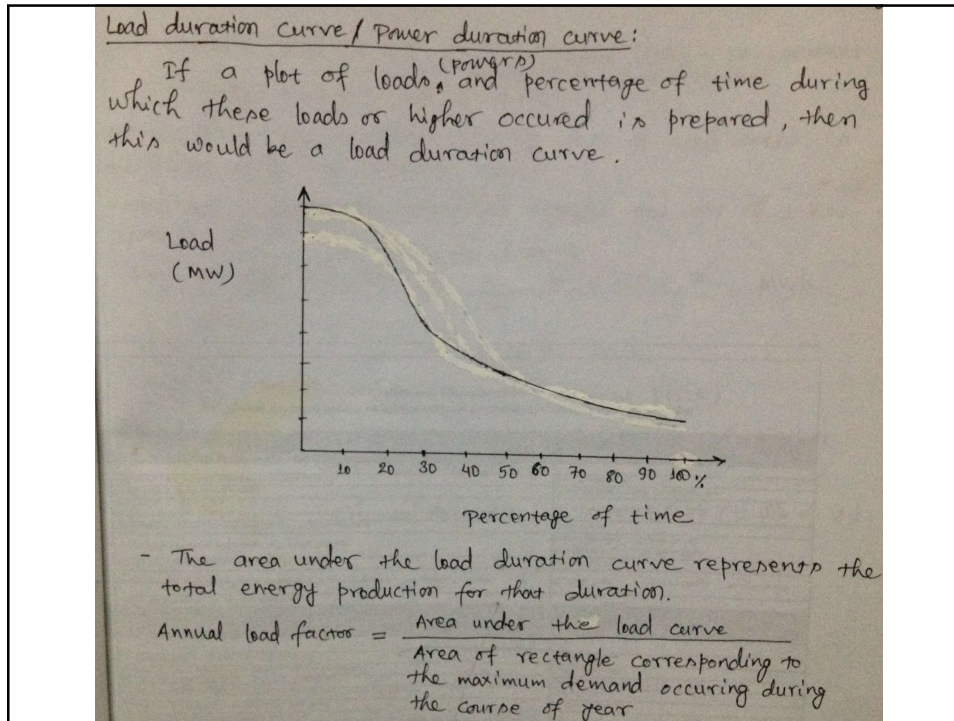 Load duration curve / Power duration curve:
If a plot of loads (powers) and percentage of time during
which these loads or higher occured is prepared, then
this would be a load duration curve.
Load
(MW)
10 20 30 40 50 60 70 80 90 100 %
Percentage of time
- The area under the load duration curve represents the
total energy production for that duration.
Annual load factor = Area under the load curve
Area of rectangle corresponding to
the maximum demand occuring during
the course of year